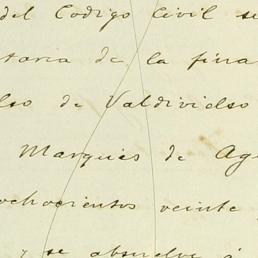 del Codigo Civil se
taria de la finca
lso de Valdivielso
Marqués de Ag
ochocientos veinte
y se absuelve á